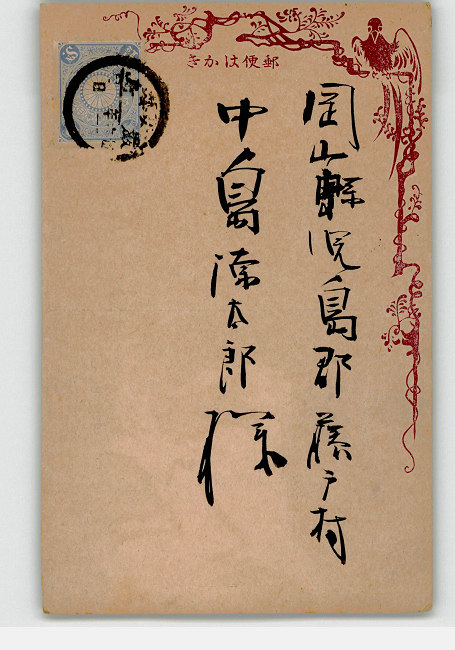 郵便はかき
岡山縣児島郡藤戸村
中島源太郎様